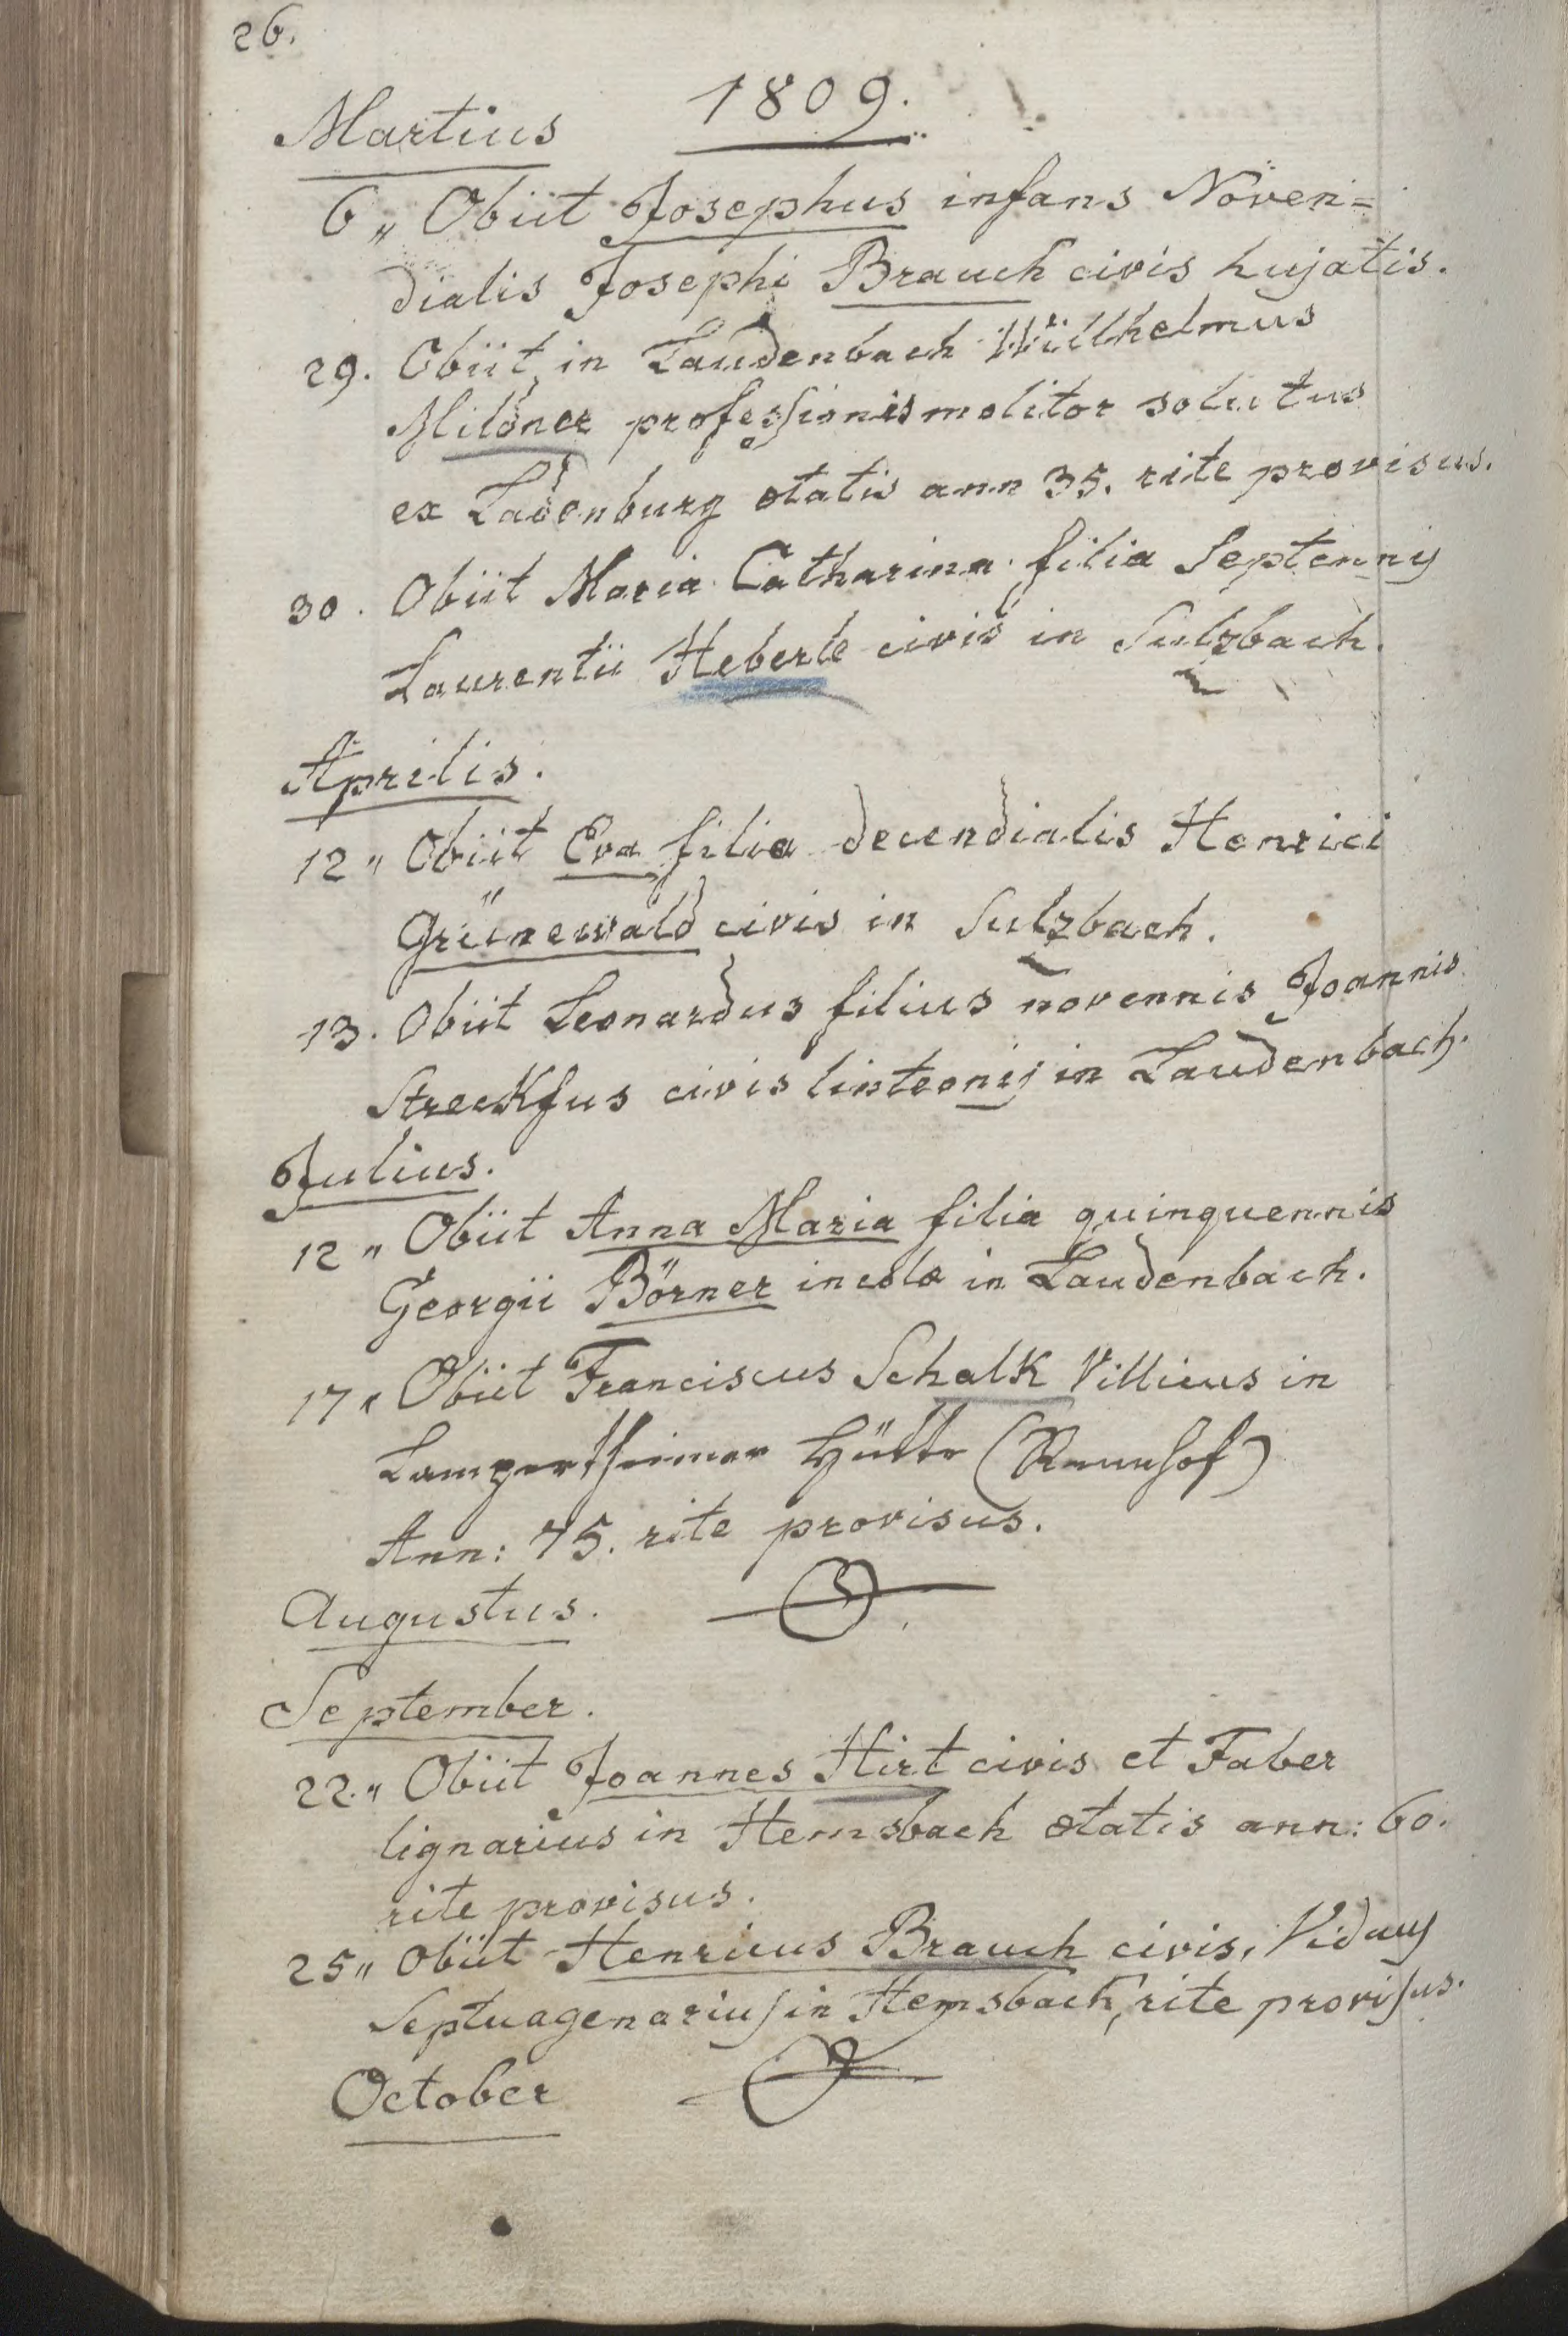 26.
1809.
Martius
6 „ Obiit Josephus infans Noven=
dialis Josephi Brauch civis hujatis.
29. Obiit in Laudenbach Wilhelmus
Mildner professionis molitor solutus
ex Ladenburg ætatis ann 35. rite provisus.
30. Obiit Maria Catharina filia Septennis
Laurentii Heberle civis in Sulzbach.
Aprilis.
12 „ Obiit Eva filia decendialis Henrici
Grünewald civis in Sulzbach.
13. Obiit Leonardus filius novennis Joannis
Streckfus civis linteonis in Laudenbach.
Julius.
12 „ Obiit Anna Maria filia quinquennis
Georgii Börner incolæ in Laudenbach.
17 „ Obiit Franciscus Schalk Villicus in
Lampertheimer Hütte (Rennhof)
Ann: 75. rite provisus.
Augustus.
September.
22 „ Obiit Joannes Hirt civis et Faber
lignarius in Hemsbach ætatis ann: 60.
rite provisus.
25 „ Obiit Henricus Brauch civis, Viduus
Septuagenarius in Hemsbach, rite provisus.
October